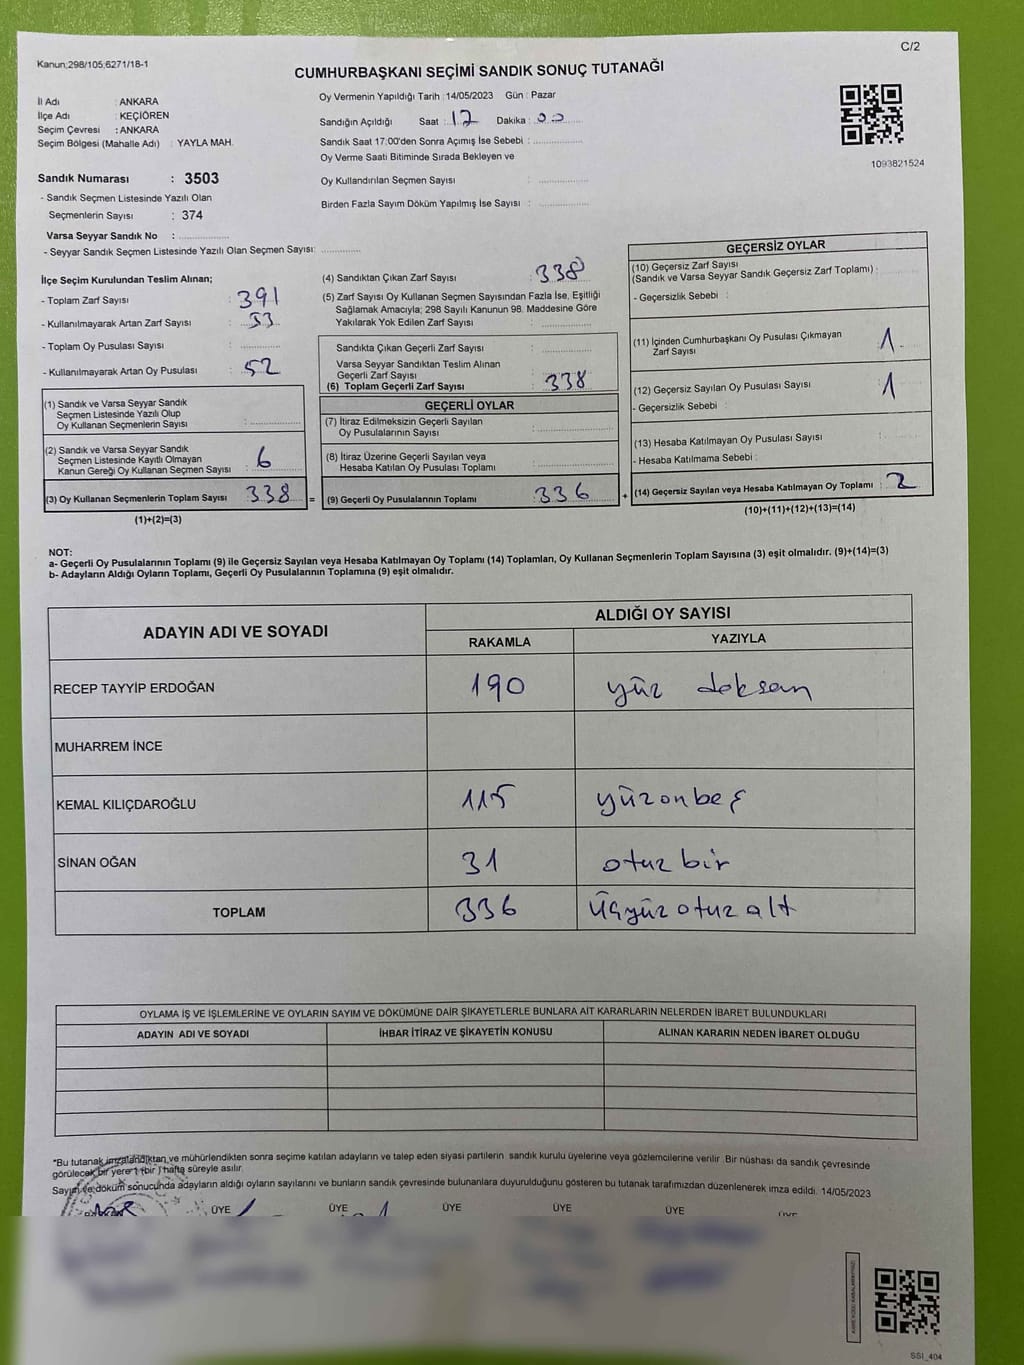 C/2
Kanun;298/105,6271/18-1
CUMHURBAŞKANI SEÇİMİ SANDIK SONUÇ TUTANAĞI
İl Adı : ANKARA
İlçe Adı : KEÇİÖREN
Seçim Çevresi : ANKARA
Seçim Bölgesi (Mahalle Adı) : YAYLA MAH.
Sandık Numarası : 3503
- Sandık Seçmen Listesinde Yazılı Olan
Seçmenlerin Sayısı : 374
Varsa Seyyar Sandık No :
- Seyyar Sandık Seçmen Listesinde Yazılı Olan Seçmen Sayısı:
Oy Vermenin Yapıldığı Tarih : 14/05/2023 Gün : Pazar
Sandığın Açıldığı Saat : 17 Dakika : 00
Sandık Saat 17:00'den Sonra Açımış İse Sebebi :
Oy Verme Saati Bitiminde Sırada Bekleyen ve
Oy Kullandırılan Seçmen Sayısı :
Birden Fazla Sayım Döküm Yapılmış İse Sayısı :
1093821524
İlçe Seçim Kurulundan Teslim Alınan;
- Toplam Zarf Sayısı : 391
- Kullanılmayarak Artan Zarf Sayısı : 53
- Toplam Oy Pusulası Sayısı :
- Kullanılmayarak Artan Oy Pusulası : 52
(1) Sandık ve Varsa Seyyar Sandık
Seçmen Listesinde Yazılı Olup
Oy Kullanan Seçmenlerin Sayısı :
(2) Sandık ve Varsa Seyyar Sandık
Seçmen Listesinde Kayıtlı Olmayan
Kanun Gereği Oy Kullanan Seçmen Sayısı : 6
(3) Oy Kullanan Seçmenlerin Toplam Sayısı : 338
(1)+(2)=(3)
=
(4) Sandıktan Çıkan Zarf Sayısı : 338
(5) Zarf Sayısı Oy Kullanan Seçmen Sayısından Fazla İse, Eşitliği
Sağlamak Amacıyla; 298 Sayılı Kanunun 98. Maddesine Göre
Yakılarak Yok Edilen Zarf Sayısı :
Sandıkta Çıkan Geçerli Zarf Sayısı :
Varsa Seyyar Sandıktan Teslim Alınan
Geçerli Zarf Sayısı :
(6) Toplam Geçerli Zarf Sayısı : 338
GEÇERLİ OYLAR
(7) İtiraz Edilmeksizin Geçerli Sayılan
Oy Pusulalarının Sayısı :
(8) İtiraz Üzerine Geçerli Sayılan veya
Hesaba Katılan Oy Pusulası Toplamı :
(9) Geçerli Oy Pusulalarının Toplamı : 336
+
GEÇERSİZ OYLAR
(10) Geçersiz Zarf Sayısı
(Sandık ve Varsa Seyyar Sandık Geçersiz Zarf Toplamı) :
- Geçersizlik Sebebi :
(11) İçinden Cumhurbaşkanı Oy Pusulası Çıkmayan
Zarf Sayısı : 1
(12) Geçersiz Sayılan Oy Pusulası Sayısı : 1
- Geçersizlik Sebebi :
(13) Hesaba Katılmayan Oy Pusulası Sayısı :
- Hesaba Katılmama Sebebi :
(14) Geçersiz Sayılan veya Hesaba Katılmayan Oy Toplamı : 2
(10)+(11)+(12)+(13)=(14)
NOT:
a- Geçerli Oy Pusulalarının Toplamı (9) ile Geçersiz Sayılan veya Hesaba Katılmayan Oy Toplamı (14) Toplamları, Oy Kullanan Seçmenlerin Toplam Sayısına (3) eşit olmalıdır. (9)+(14)=(3)
b- Adayların Aldığı Oyların Toplamı, Geçerli Oy Pusulalarının Toplamına (9) eşit olmalıdır.
ADAYIN ADI VE SOYADI ALDIĞI OY SAYISI
RAKAMLA YAZIYLA
RECEP TAYYİP ERDOĞAN 190 yüz doksan
MUHARREM İNCE
KEMAL KILIÇDAROĞLU 115 yüzonbeş
SİNAN OĞAN 31 otuz bir
TOPLAM 336 Üçyüz otuz altı
OYLAMA İŞ VE İŞLEMLERİNE VE OYLARIN SAYIM VE DÖKÜMÜNE DAİR ŞİKAYETLERLE BUNLARA AİT KARARLARIN NELERDEN İBARET BULUNDUKLARI
ADAYIN ADI VE SOYADI İHBAR İTİRAZ VE ŞİKAYETİN KONUSU ALINAN KARARIN NEDEN İBARET OLDUĞU
*Bu tutanak imzalandıktan ve mühürlendikten sonra seçime katılan adayların ve talep eden siyasi partilerin sandık kurulu üyelerine veya gözlemcilerine verilir. Bir nüshası da sandık çevresinde
görülecek bir yere 1 (bir ) hafta süreyle asılır.
Sayım ve döküm sonucunda adayların aldığı oyların sayılarını ve bunların sandık çevresinde bulunanlara duyurulduğunu gösteren bu tutanak tarafımızdan düzenlenerek imza edildi. 14/05/2023
ÜYE ÜYE ÜYE ÜYE ÜYE
SSI_404